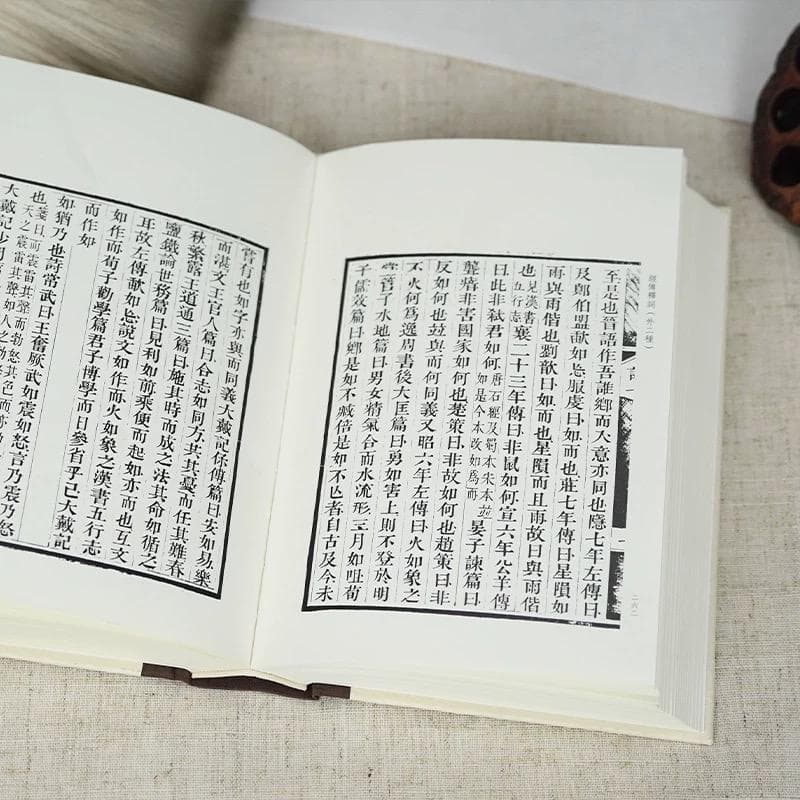 經傳釋詞（外二種）
至是也晉語作吾誰鄉而大意亦同也隱七年左傳曰
及鄭伯盟歃如忘服虔曰如而也莊七年傳曰星隕如
雨與雨偕也劉歆曰如而也星隕而且雨故曰與雨偕
也見漢書五行志襄二十三年傳曰非鼠如何宣六年公羊傳
曰此非弑君如何唐石經及蜀本宋本並如是今本改如爲而晏子諫篇曰
聾瘖非害國家如何也楚策曰非故如何也趙策曰非
反如何也竝與而何同義又昭六年左傳曰火如象之
不火何爲逸周書後大匡篇曰勇如害上則不登於明
堂管子水地篇曰男女精氣合而水流形三月如咀荀
子儒效篇曰鄉是如不臧倍是如不亡者自古及今未
二六二
嘗有也如字亦與而同義大戴記保傅篇曰安如易樂
而湛文王官人篇曰合志如同方其其憂而任其難春
秋繁露王道通三篇曰施其時而成之法其命如循之
鹽鐵論世務篇曰見利如前乘便而起如亦而也互文
耳故左傳歃如忘說文如作而火如象之漢書五行志
如作而荀子勸學篇君子博學而日參省乎己大戴記
而作如
如猶乃也詩常武曰王奮厥武如震如怒言乃震乃怒
也箋曰而震雷其聲而勃怒其色而
天之震雷其聲如人之勃
大戴記少閒